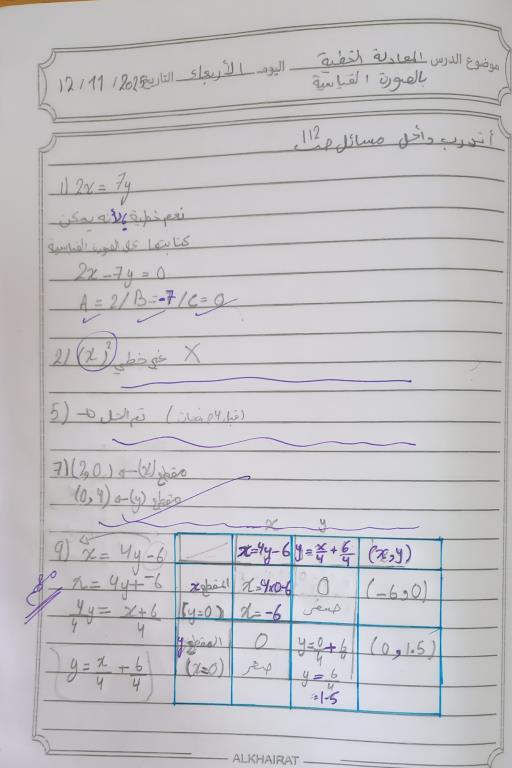 موضوع الدرس المعادلة الخطية اليوم الأربعاء التاريخ 12/11/2025
بالصورة القياسية
أتدرب وأحل مسائل ص112
1) 2x = 7y
نعم خطية لأنه يمكن
كتابتها على الصورة القياسية
2x - 7y = 0
A = 2 / B = -7 / C = 0
2) (x)² غير خطي X
5) تم الحل
7) (2,0) ← (x) مقطع
(0,4) ← (y) مقطع
x y
9) x = 4y - 6
x = 4y + -6
4y/4 = x+6/4
y = x/4 + 6/4
x=4y-6 y=x/4+6/4 (x,y)
المقطع x (y=0) x=4x0-6 x=-6 0 صفر (-6,0)
المقطع y (x=0) 0 صفر y=0/4+6/4 y=6/4 =1.5 (0,1.5)
ALKHAIRAT